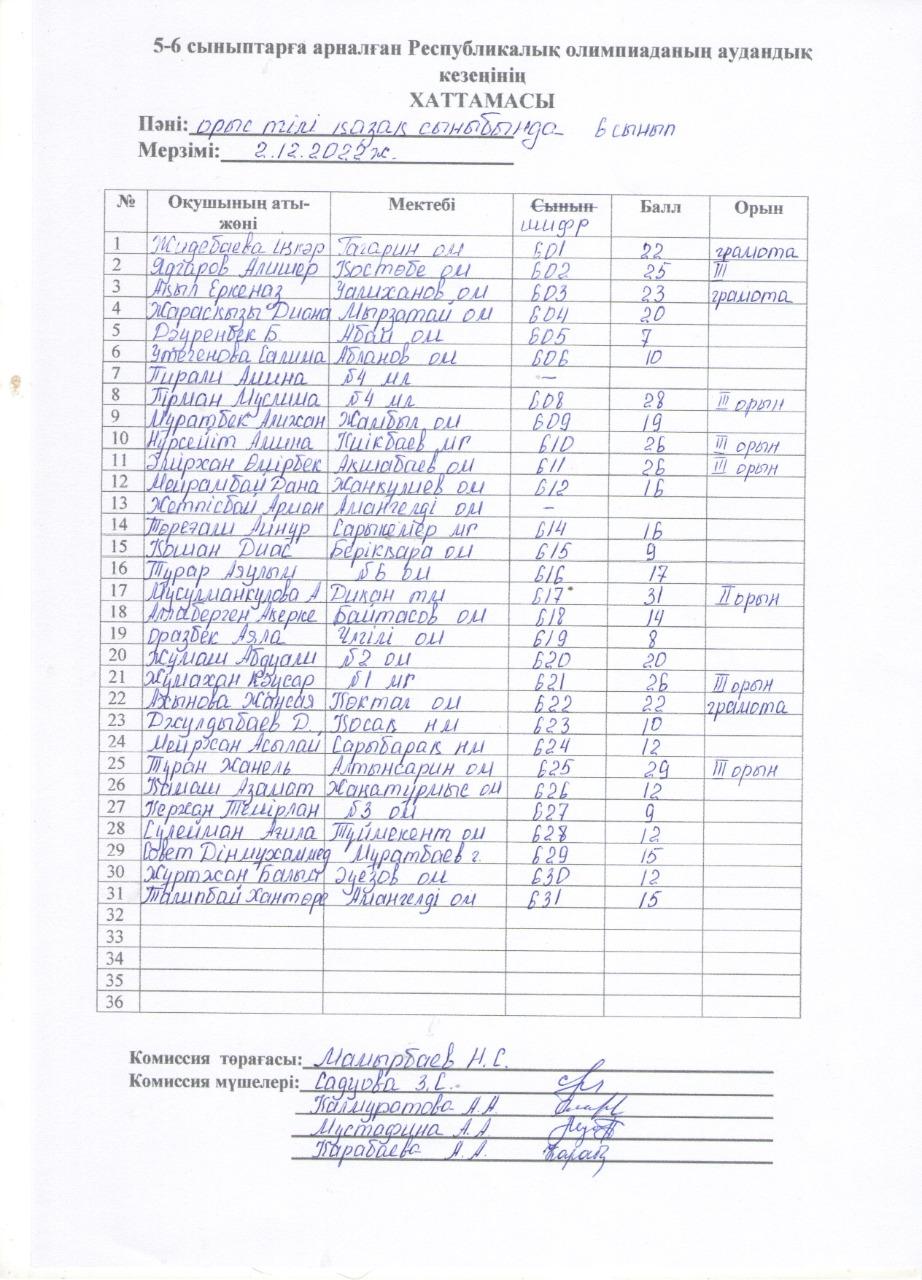 5-6 сыныптарға арналған Республикалық олимпиаданың аудандық
кезеңінің
ХАТТАМАСЫ
Пәні: орыс тілі қазақ сыныбында 6 сынып
Мерзімі: 2.12.2022ж.
№ Оқушының аты-жөні Мектебі Сынып шифр Балл Орын
1 Жидебаева Іңкәр Гагарин ом 601 22 грамота
2 Ядгаров Алишер Қостөбе ом 602 25 III
3 Ақыл Еркеназ Уалиханов ом 603 23 грамота
4 Жарасқызы Диана Мырзатай ом 604 20
5 Дәуренбек Б. Абай ом 605 7
6 Утегенова Салима Абланов ом 606 10
7 Пирали Амина №4 мл –
8 Пірман Муслима №4 мл 608 28 III орын
9 Мұратбек Алихан Жамбыл ом 609 19
10 Нұрсейіт Амина Киікбаев мг 610 26 III орын
11 Әмірхан Өмірбек Ақшабаев ом 611 26 III орын
12 Мейрамбай Дана Жанкулиев ом 612 16
13 Жетпісбай Арман Амангелді ом –
14 Төреғали Айнур Сарыкемер мг 614 16
15 Қошан Диас Беріққара ом 615 9
16 Тұрар Аяулым №6 ом 616 17
17 Мусулманкулова А Диқан тм 617 31 II орын
18 Алпаберген Ақерке Байтасов ом 618 14
19 Оразбек Азла Үлгілі ом 619 8
20 Жұмаш Абдуали №2 ом 620 20
21 Жұмахан Кәусар №1 мг 621 26 III орын
22 Ахынова Жансая Көктал ом 622 22 грамота
23 Джулдыбаев Д. Қосақ нм 623 10
24 Мейрхан Асылай Сарыбарақ нм 624 12
25 Тұран Жанель Алтынсарин ом 625 29 III орын
26 Қамаш Азамат Жаңатұрмыс ом 626 12
27 Керхан Темірлан №3 ом 627 9
28 Сүлейман Ағила Түймекент ом 628 12
29 Совет Дінмухаммед Мұратбаев г. 629 15
30 Жүртжан Балым Әуезов ом 630 12
31 Талипбай Хантөре Амангелді ом 631 15
32
33
34
35
36
Комиссия төрағасы: Мамырбаев Н.С.
Комиссия мүшелері: Садуова З.С.
Калмуратова А.А.
Мустафина А.А
Карабаева А.А.